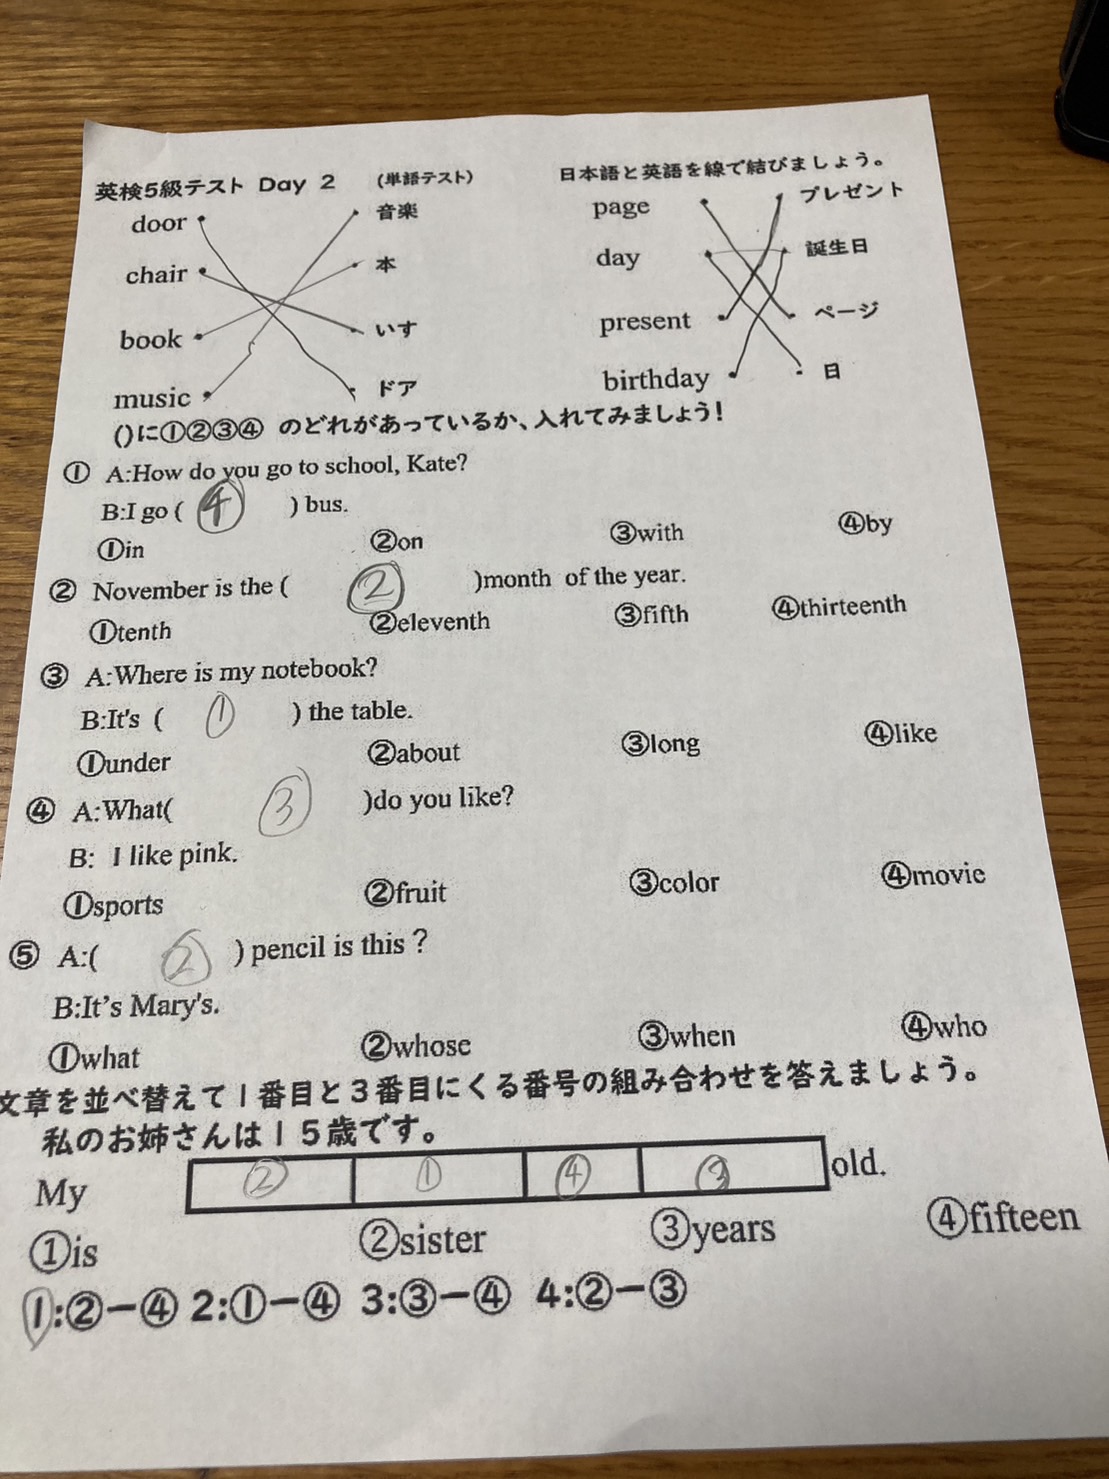 英検5級テスト Day 2 (単語テスト) 日本語と英語を線で結びましょう。
door 音楽 page プレゼント
chair 本 day 誕生日
book いす present ページ
music ドア birthday 日
()に①②③④ のどれがあっているか、入れてみましょう!
① A:How do you go to school, Kate?
B:I go ( ④ ) bus.
①in ②on ③with ④by
② November is the ( ② )month of the year.
①tenth ②eleventh ③fifth ④thirteenth
③ A:Where is my notebook?
B:It's ( ① ) the table.
①under ②about ③long ④like
④ A:What( ③ )do you like?
B: I like pink.
①sports ②fruit ③color ④movie
⑤ A:( ② ) pencil is this ?
B:It's Mary's.
①what ②whose ③when ④who
文章を並べ替えて1番目と3番目にくる番号の組み合わせを答えましょう。
私のお姉さんは15歳です。
My ② ① ④ ③ old.
①is ②sister ③years ④fifteen
1:②ー④ 2:①ー④ 3:③ー④ 4:②ー③